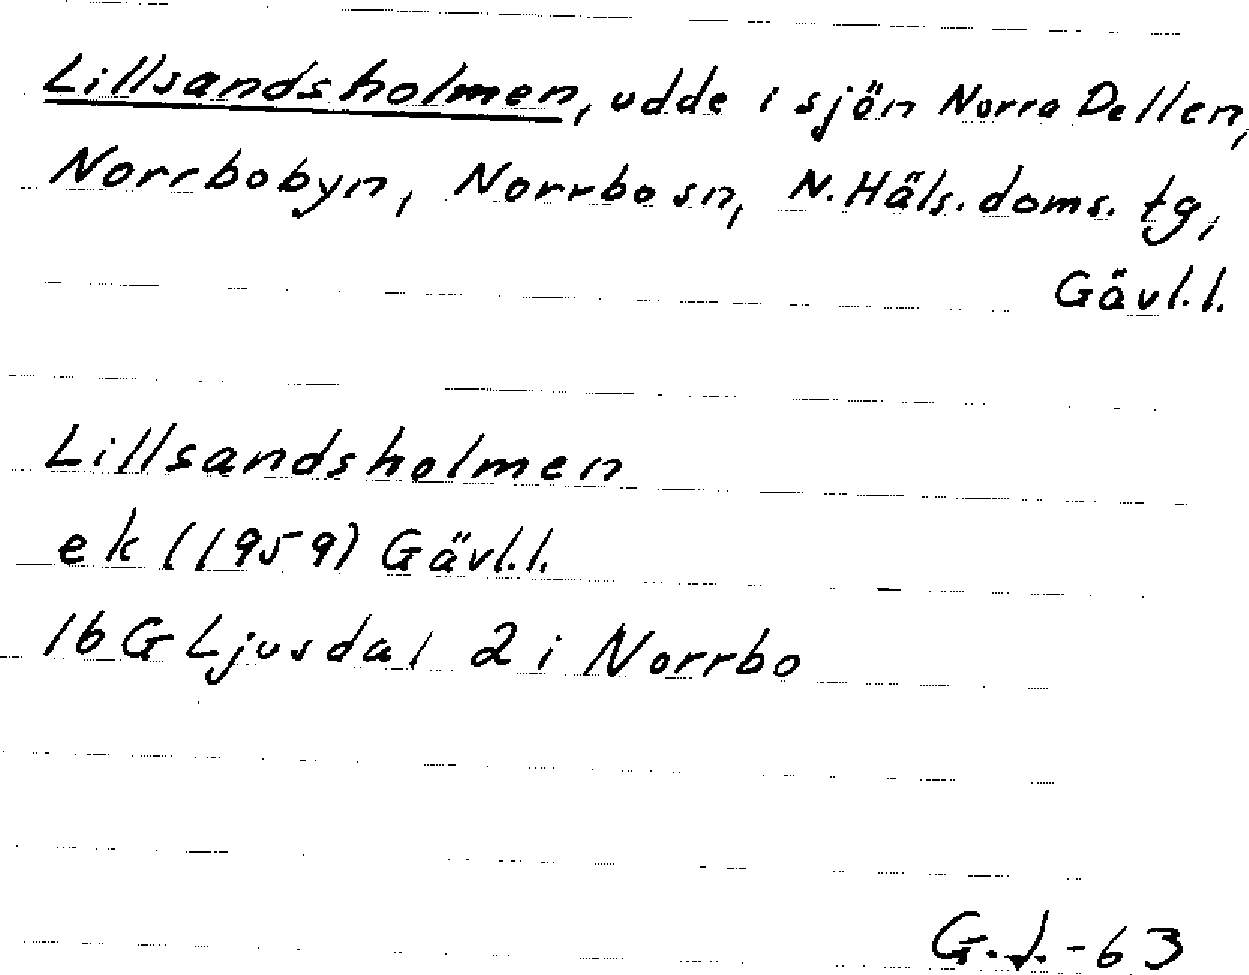 Lillsandsholmen, udde i sjön Norra Dellen,
Norrbobyn, Norrbo sn, N. Häls. doms. tg,
Gävl.l.
Lillsandsholmen
ek (1959) Gävl.l.
16 G Ljusdal 2 i Norrbo
G.J.-63